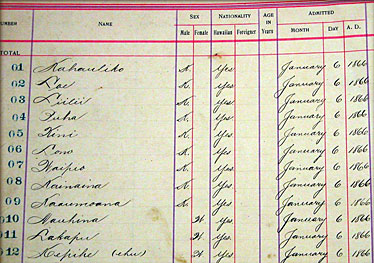 UMBER NAME SEX NATIONALITY AGE IN Years ADMITTED
Male Female Hawaiian Foreigner MONTH DAY A. D.
TOTAL
01 Kahauliko M. Yes January 6 1866
02 Loe M. Yes January 6 1866
03 Liilii M. Yes January 6 1866
04 Puha M. Yes January 6 1866
05 Kini M. Yes January 6 1866
06 Lono M. Yes January 6 1866
07 Waipio M. Yes January 6 1866
08 Kainaina M. Yes January 6 1866
09 Kaaumoana M. Yes January 6 1866
010 Nauhina Yes. January 6 1866
011 Lakapu Yes. January 6 1866
012 Kepihe (ehu) Yes January 6 1866